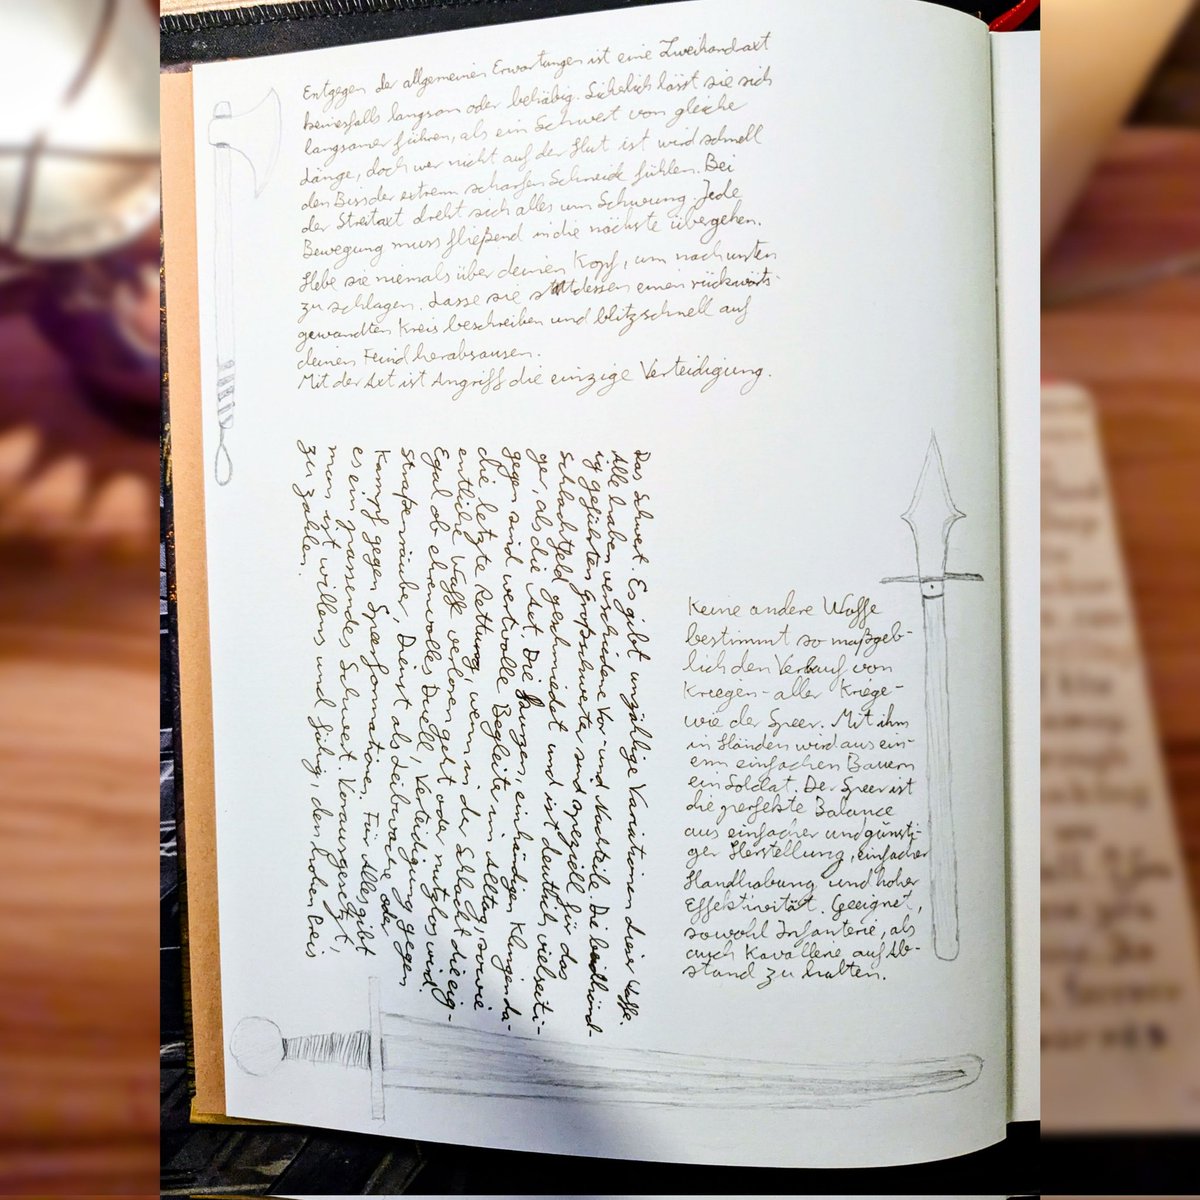 Entgegen der allgemeinen Erwartungen ist eine Zweihandaxt
keinesfalls langsam oder behäbig. Sicherlich lässt sie sich
langsamer führen, als ein Schwert von gleicher
Länge, doch wer nicht auf der Hut ist wird schnell
den Biss der extrem scharfen Schneide fühlen. Bei
der Streitaxt dreht sich alles um Schwung. Jede
Bewegung muss fließend in die nächste übergehen.
Hebe sie niemals über deinen Kopf, um nach unten
zu schlagen. Lasse sie stattdessen einen rückwärts-
gewandten Kreis beschreiben und blitzschnell auf
deinen Feind herabsausen.
Mit der Axt ist Angriff die einzige Verteidigung.
Das Schwert. Es gibt unzählige Variationen dieser Waffe.
Alle haben verschiedene Vor- und Nachteile. Die beidhänd-
ig geführten Großschwerter sind speziell für das
Schlachtfeld geschmiedet und ist deutlich vielseiti-
ger, als die Axt. Die einhändigen Klingen da-
gegen sind wertvolle Begleiter im Alltag, sowie
die letzte Rettung, wenn in der Schlacht die eig-
entliche Waffe verloren geht oder nutzlos wird.
Egal ob ehrenvolles Duell, Verteidigung gegen
Straßenräuber, Dienst als Leibwache oder
Kampf gegen Speerformationen. Für alles gibt
es ein passendes Schwert. Vorausgesetzt,
man ist willens und fähig, den hohen Preis
zu zahlen.
Keine andere Waffe
bestimmt so maßgeb-
lich den Verlauf von
Kriegen - aller Kriege -
wie der Speer. Mit ihm
in Händen wird aus ein-
em einfachen Bauern
ein Soldat. Der Speer ist
die perfekte Balance
aus einfacher und günsti-
ger Herstellung, einfacher
Handhabung und hoher
Effektivität. Geeignet,
sowohl Infanterie, als
auch Kavallerie auf Ab-
stand zu halten.